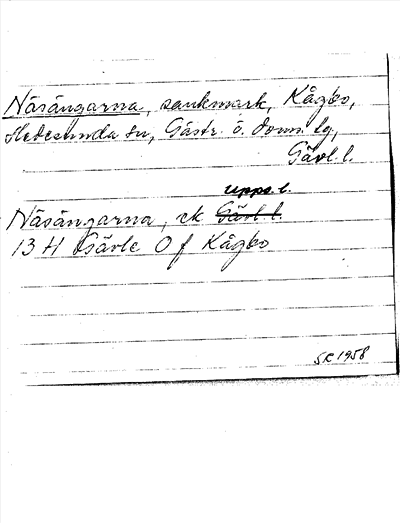 Näsängarna, sankmark, Kågbo,
Hedesunda sn, Gästr. ö. doms. lg,
Gävl. l.
Upps. l.
Näsängarna, ek Gävl. l.
13 H Gävle 0 f Kågbo
SR 1958